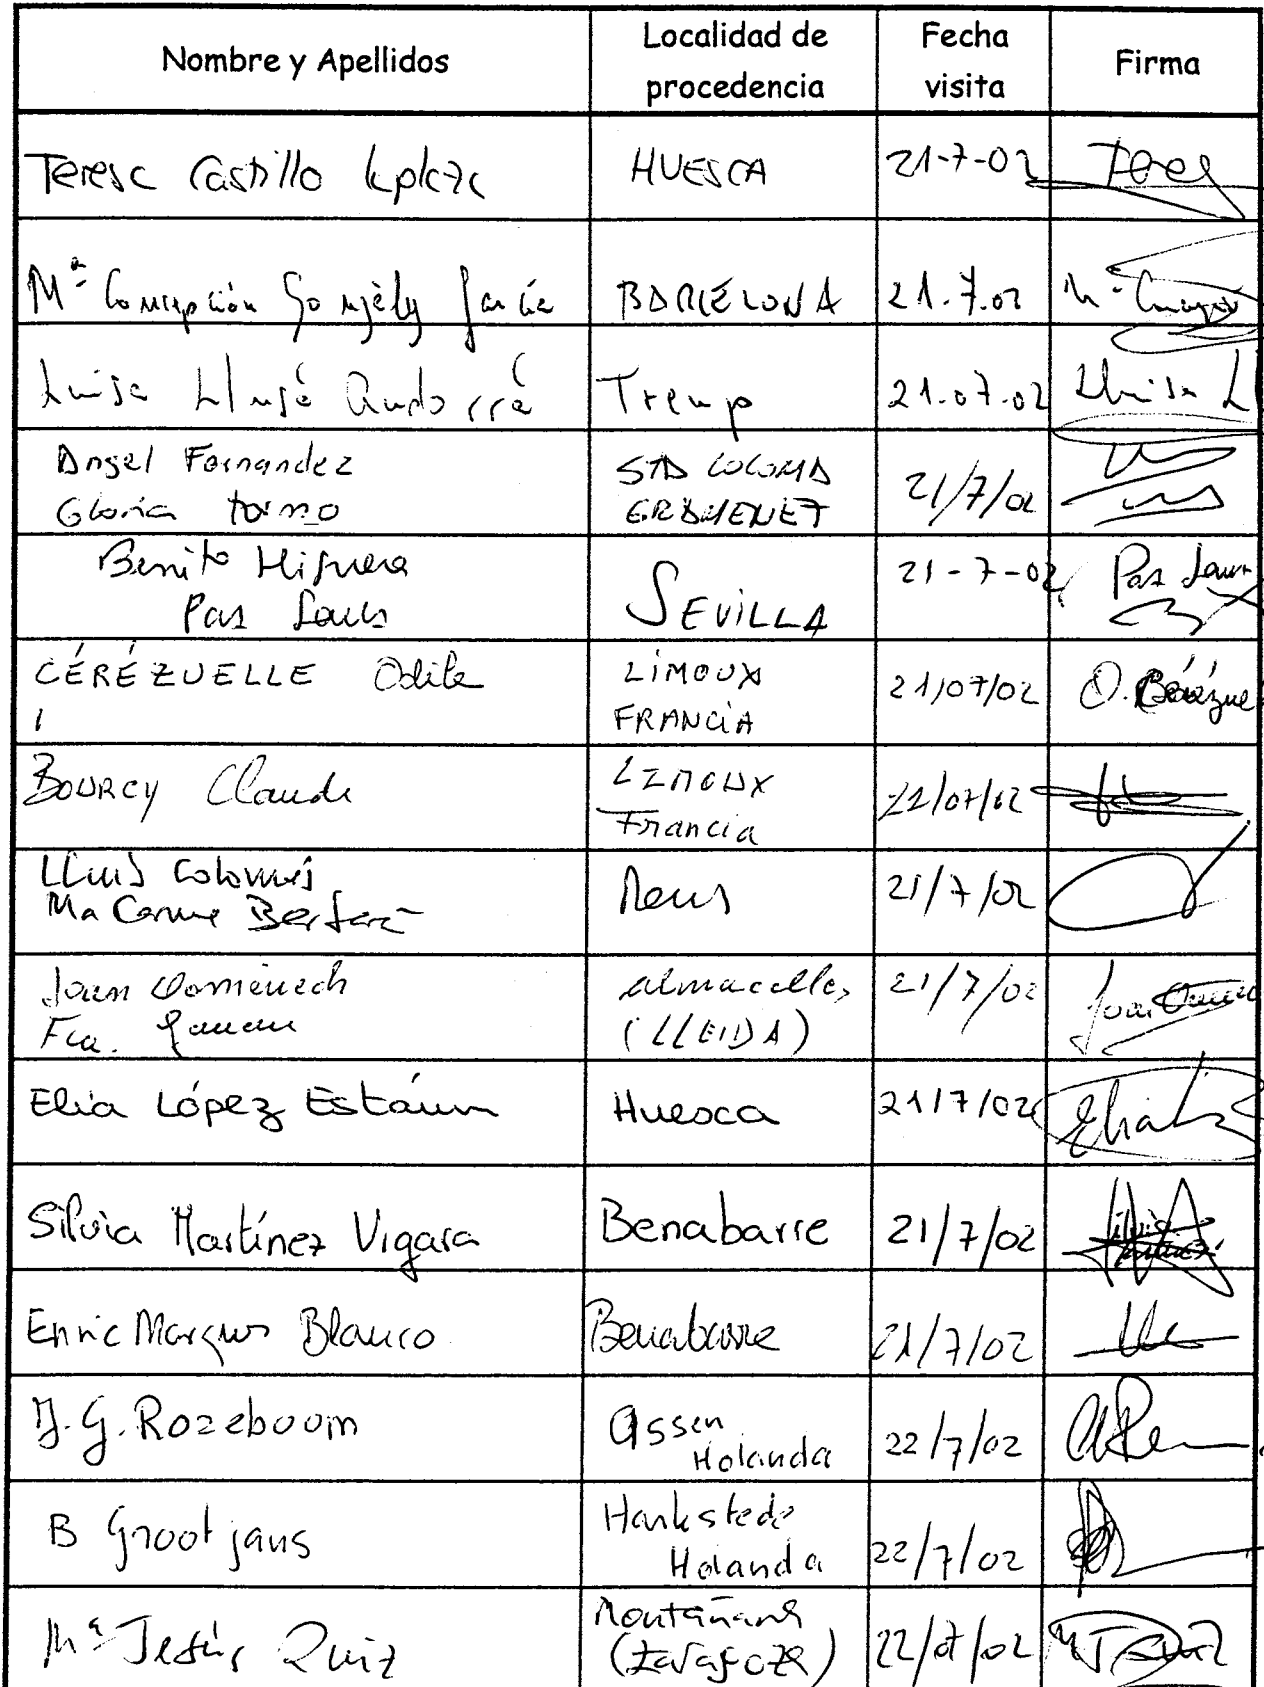 Nombre y Apellidos
Localidad de
procedencia
Fecha
visita
Firma
Teresa Castillo
HUESCA
21-7-02
Mª Concepción
BARCELONA
21.7.02
Luisa Llusá Andorrá
Tremp
21.07.02
Lluisa Ll
Angel Fernandez
Gloria tormo
STA COLOMA
GRAMENET
21/7/02
Benito Higuera
Paz
SEVILLA
21-7-02
Paz
CÉRÉZUELLE Odile
LIMOUX
FRANCIA
21/07/02
O.
BOURCY Claude
LIMOUX
Francia
21/07/02
Lluis Colomés
Ma Carme
Reus
21/7/02
Joan Domènech
Fca.
almacelles
(LLEIDA)
21/7/02
Joan
Elia López Estaún
Huesca
21/7/02
Silvia Martínez Vigara
Benabarre
21/7/02
Silvia
Martínez
Enric Marques Blanco
Benabarre
21/7/02
J.G. Rozeboom
Assen
Holanda
22/7/02
B Grootjans
Harkstede
Holanda
22/7/02
Mª Jesús Ruiz
Montañana
(Zaragoza)
22/07/02